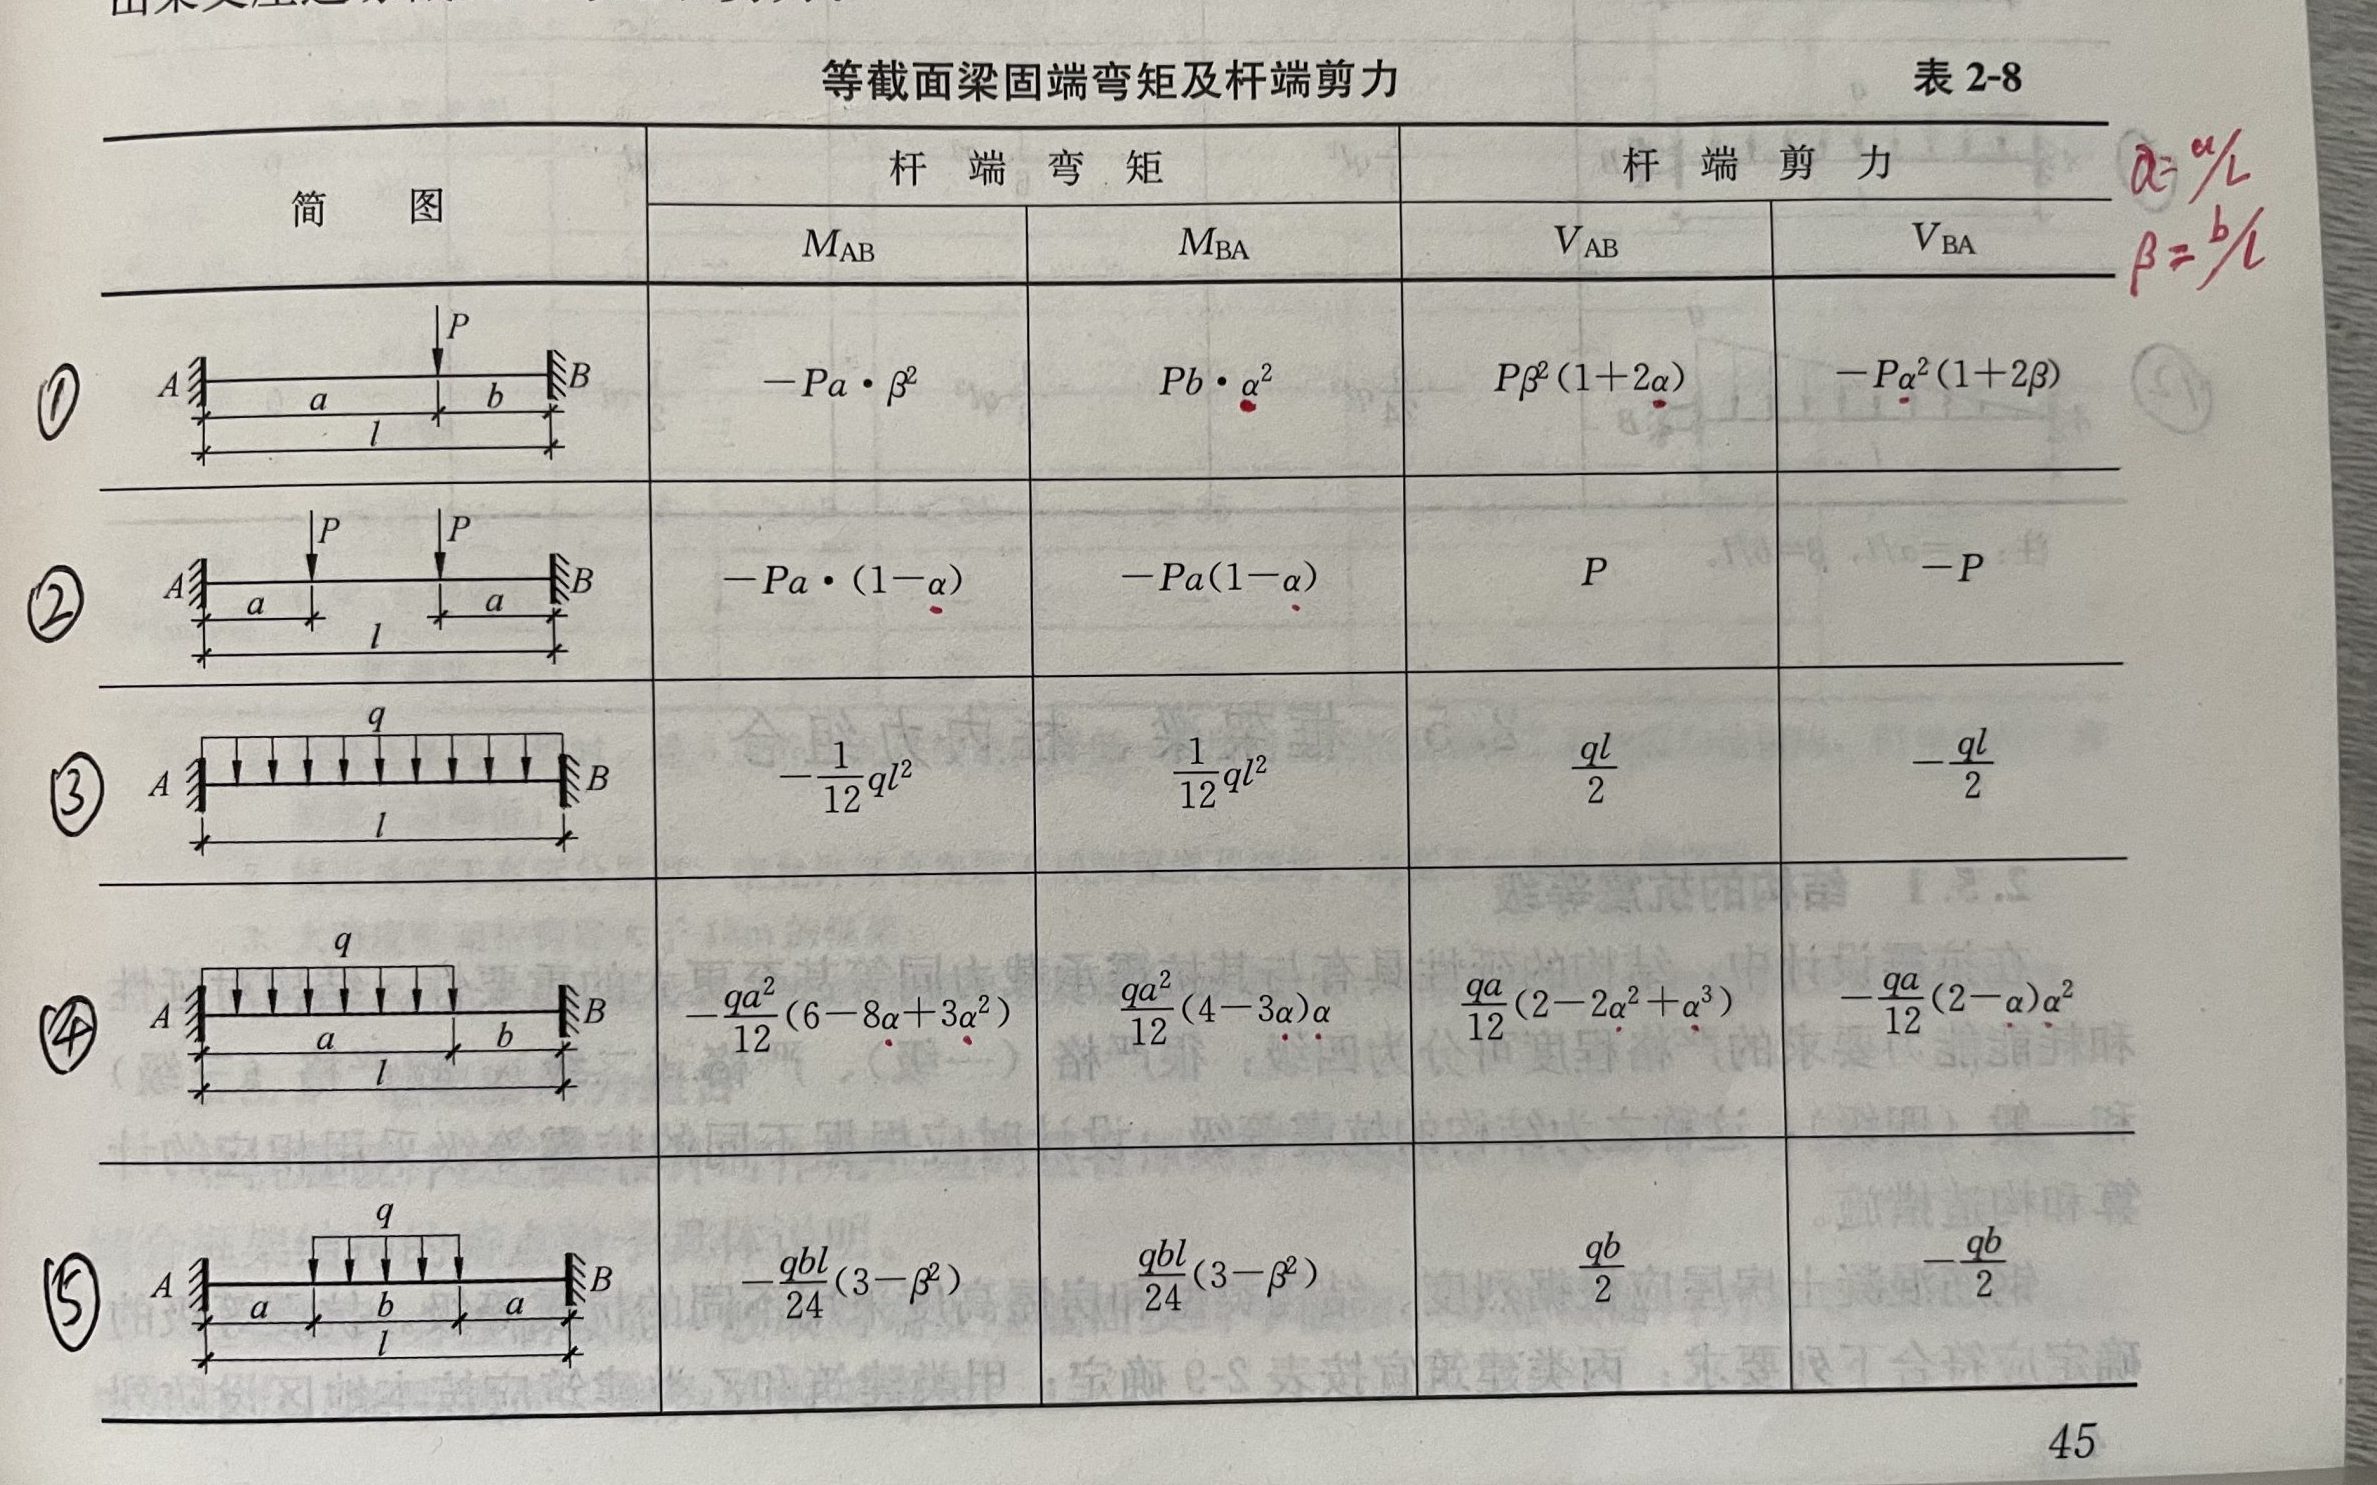 等截面梁固端弯矩及杆端剪力 表 2-8
简 图 杆 端 弯 矩 杆 端 剪 力
M_AB M_BA V_AB V_BA
α=a/L
β=b/L
① A P B a b l −Pa·β² Pb·α² Pβ²(1+2α) −Pα²(1+2β)
② A P P B a a l −Pa·(1−α) −Pa(1−α) P −P
③ q A B l −1/12 ql² 1/12 ql² ql/2 −ql/2
④ q A B a b l −qa²/12 (6−8α+3α²) qa²/12 (4−3α)α qa/12 (2−2α²+α³) −qa/12 (2−α)α²
⑤ q A B a b a l −qbl/24 (3−β²) qbl/24 (3−β²) qb/2 −qb/2
45